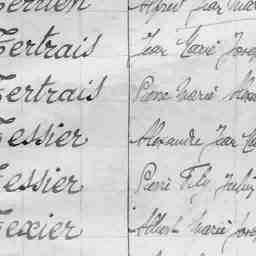 Terrien Alfred Jean Mar
Tertrais Jean Marie Josep
Tertrais Pierre Marie Alexa
Tessier Alexandre Jean Ma
Tessier Pierre Julien
Texier Albert Marie Josep